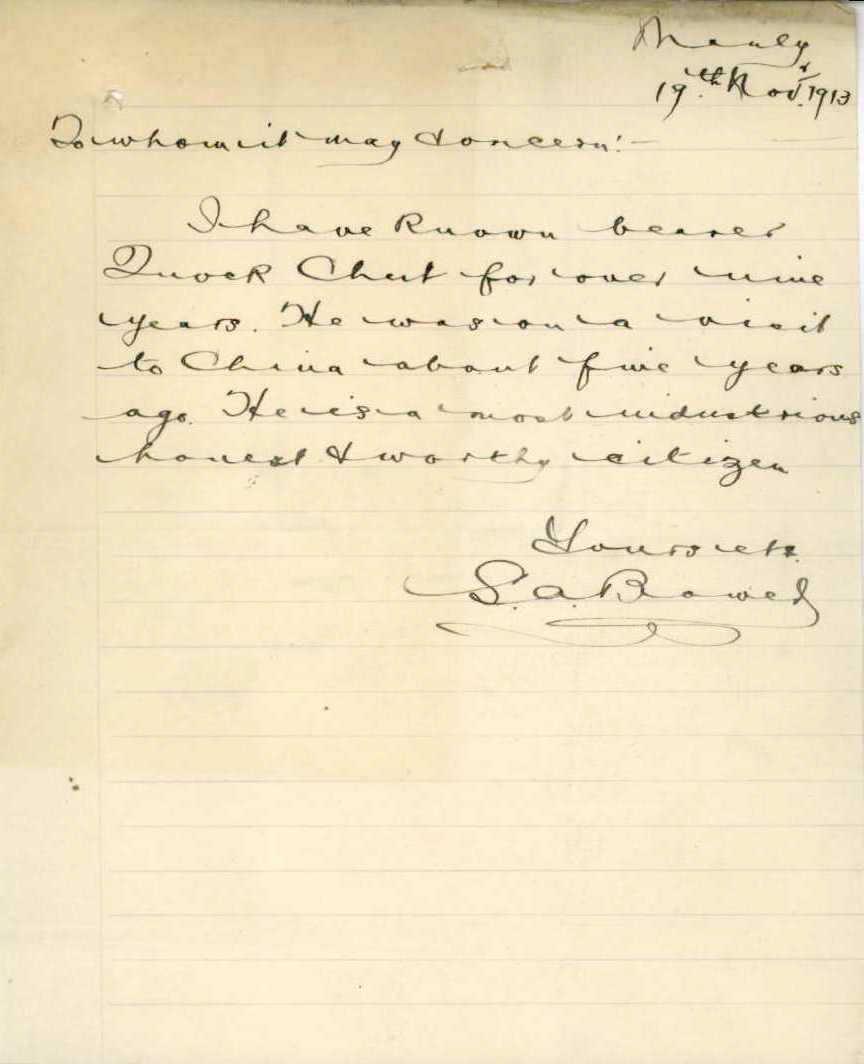 Manly
19th Novr. 1913
To whom it may concern:-
I have known bearer
Quock Chut for over nine
years. He was on a visit
to China about five years
ago. He is a most industrious
honest & worthy citizen
Yours etc.
S. A.